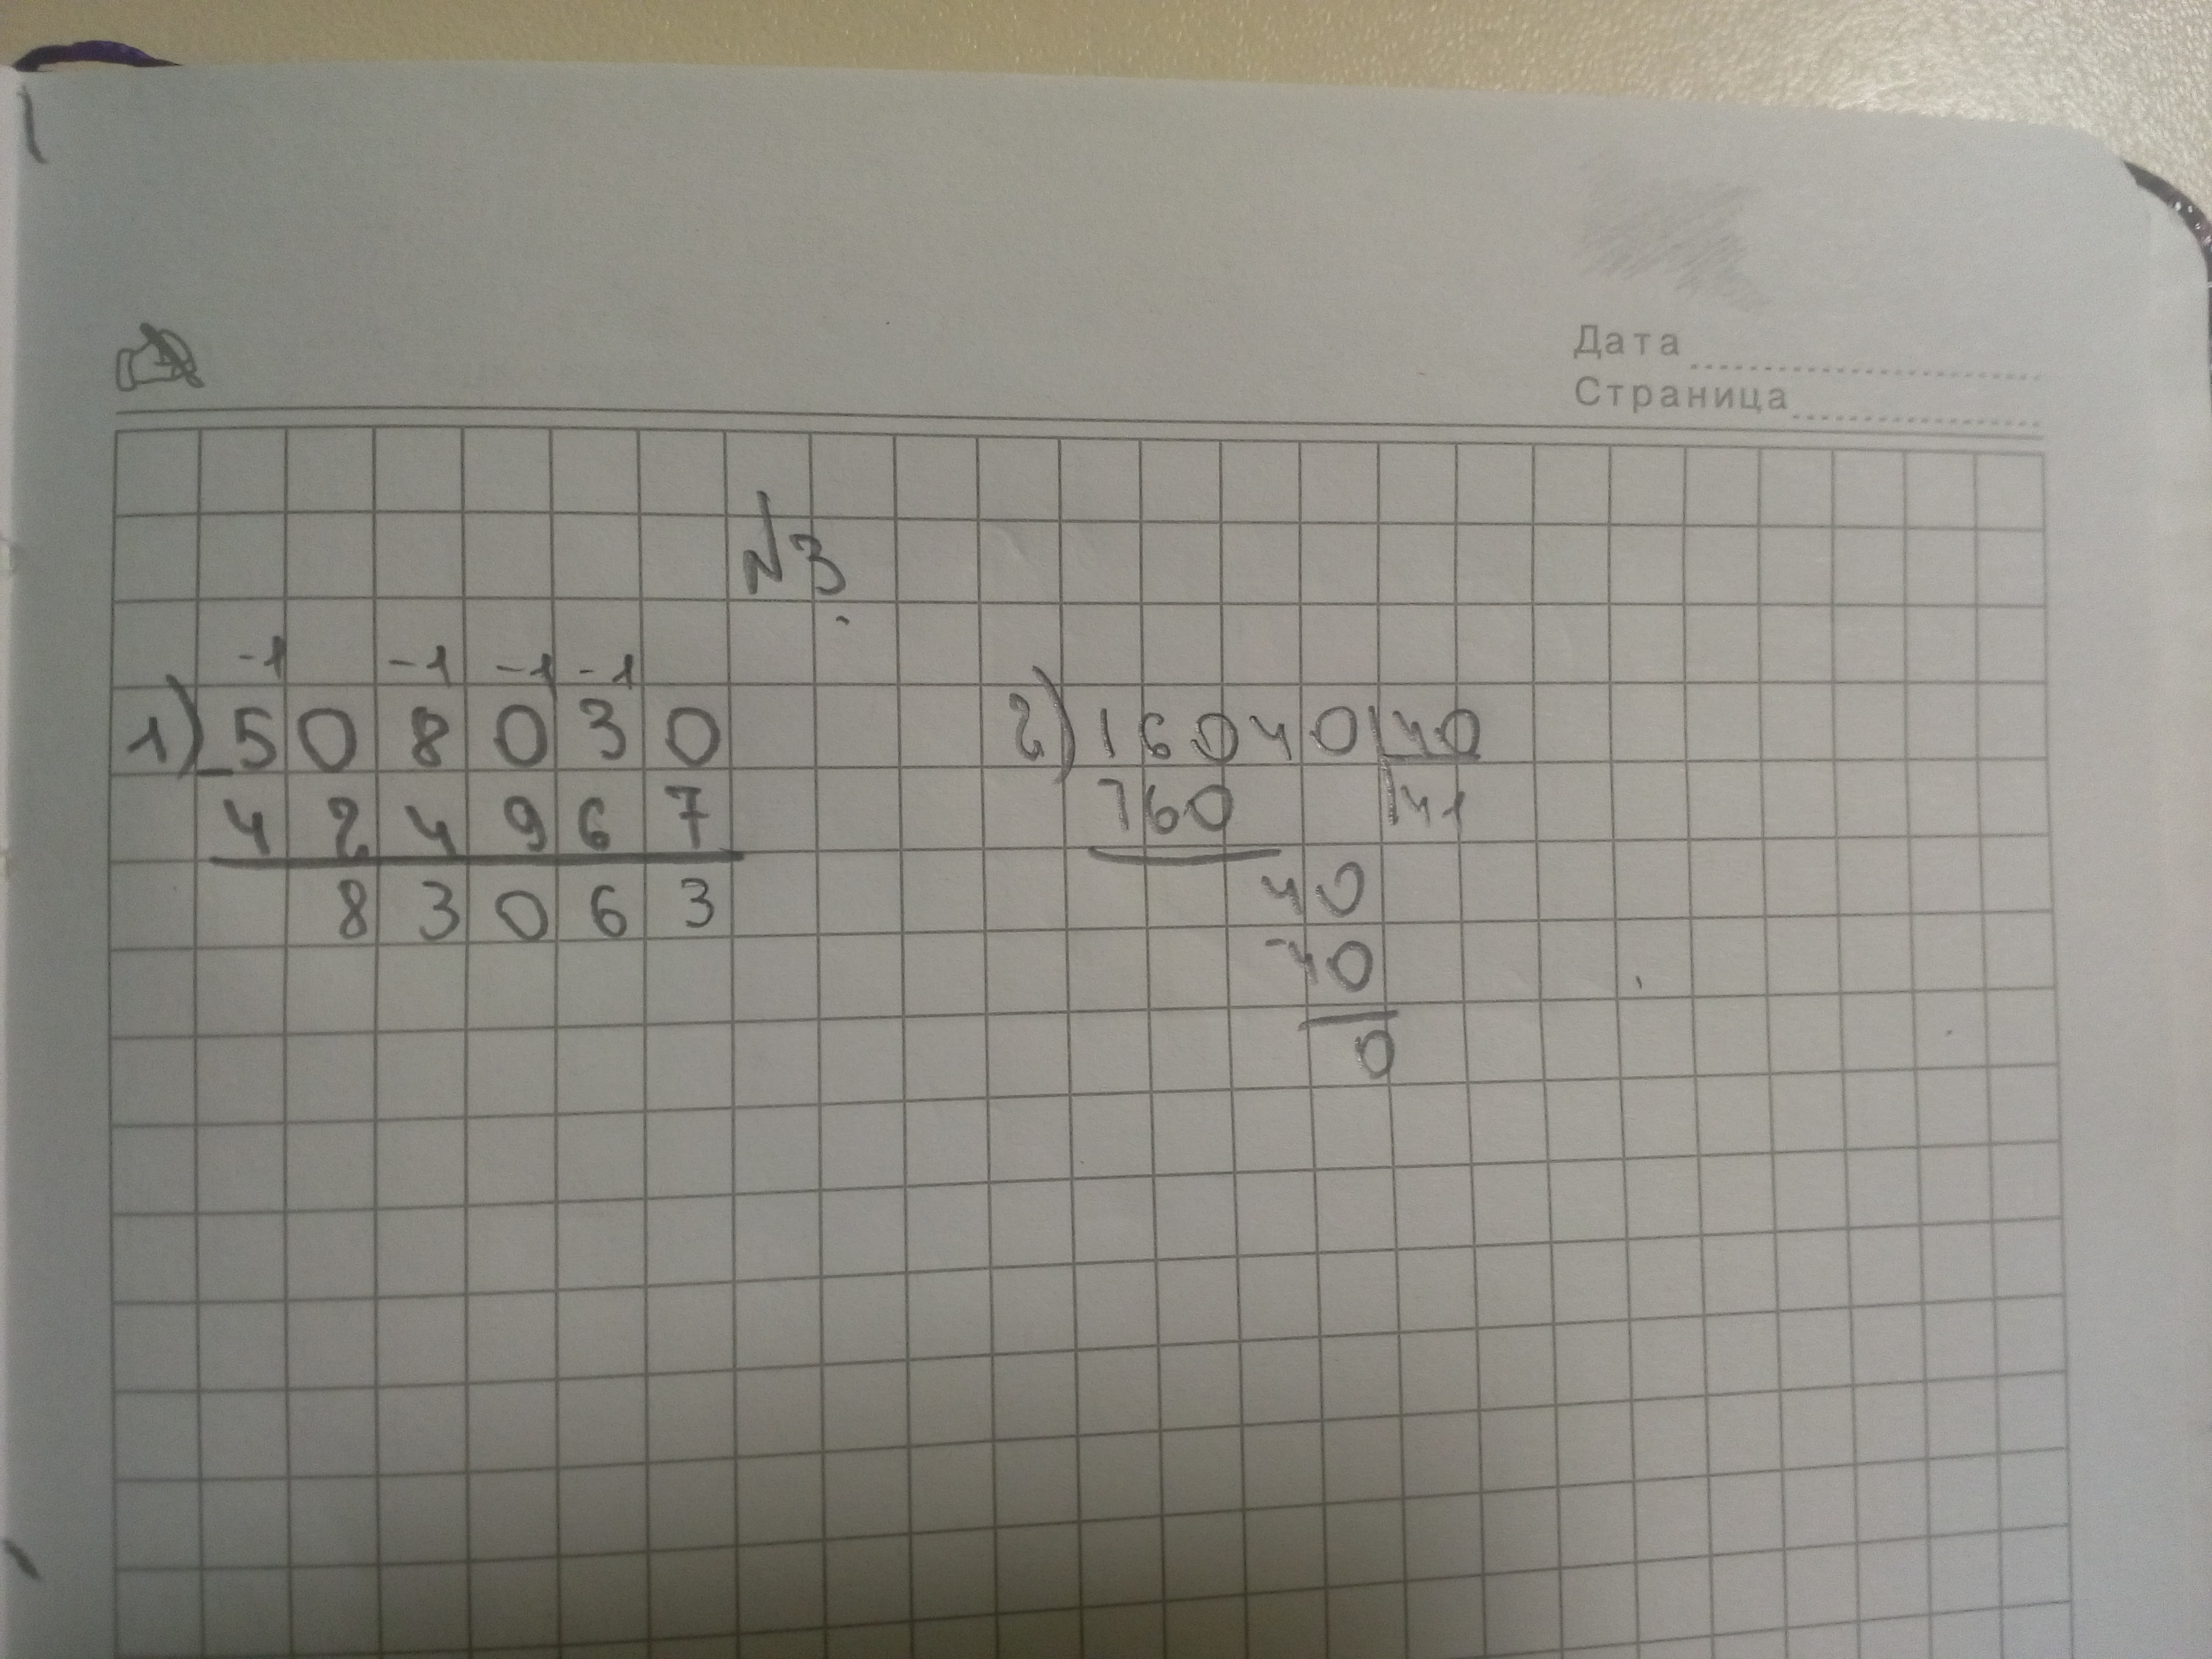 Дата
Страница
№3
-1 -1 -1 -1
1) 508030
- 424967
83063
2) 16040 | 40
160 | 41
40
-40
0